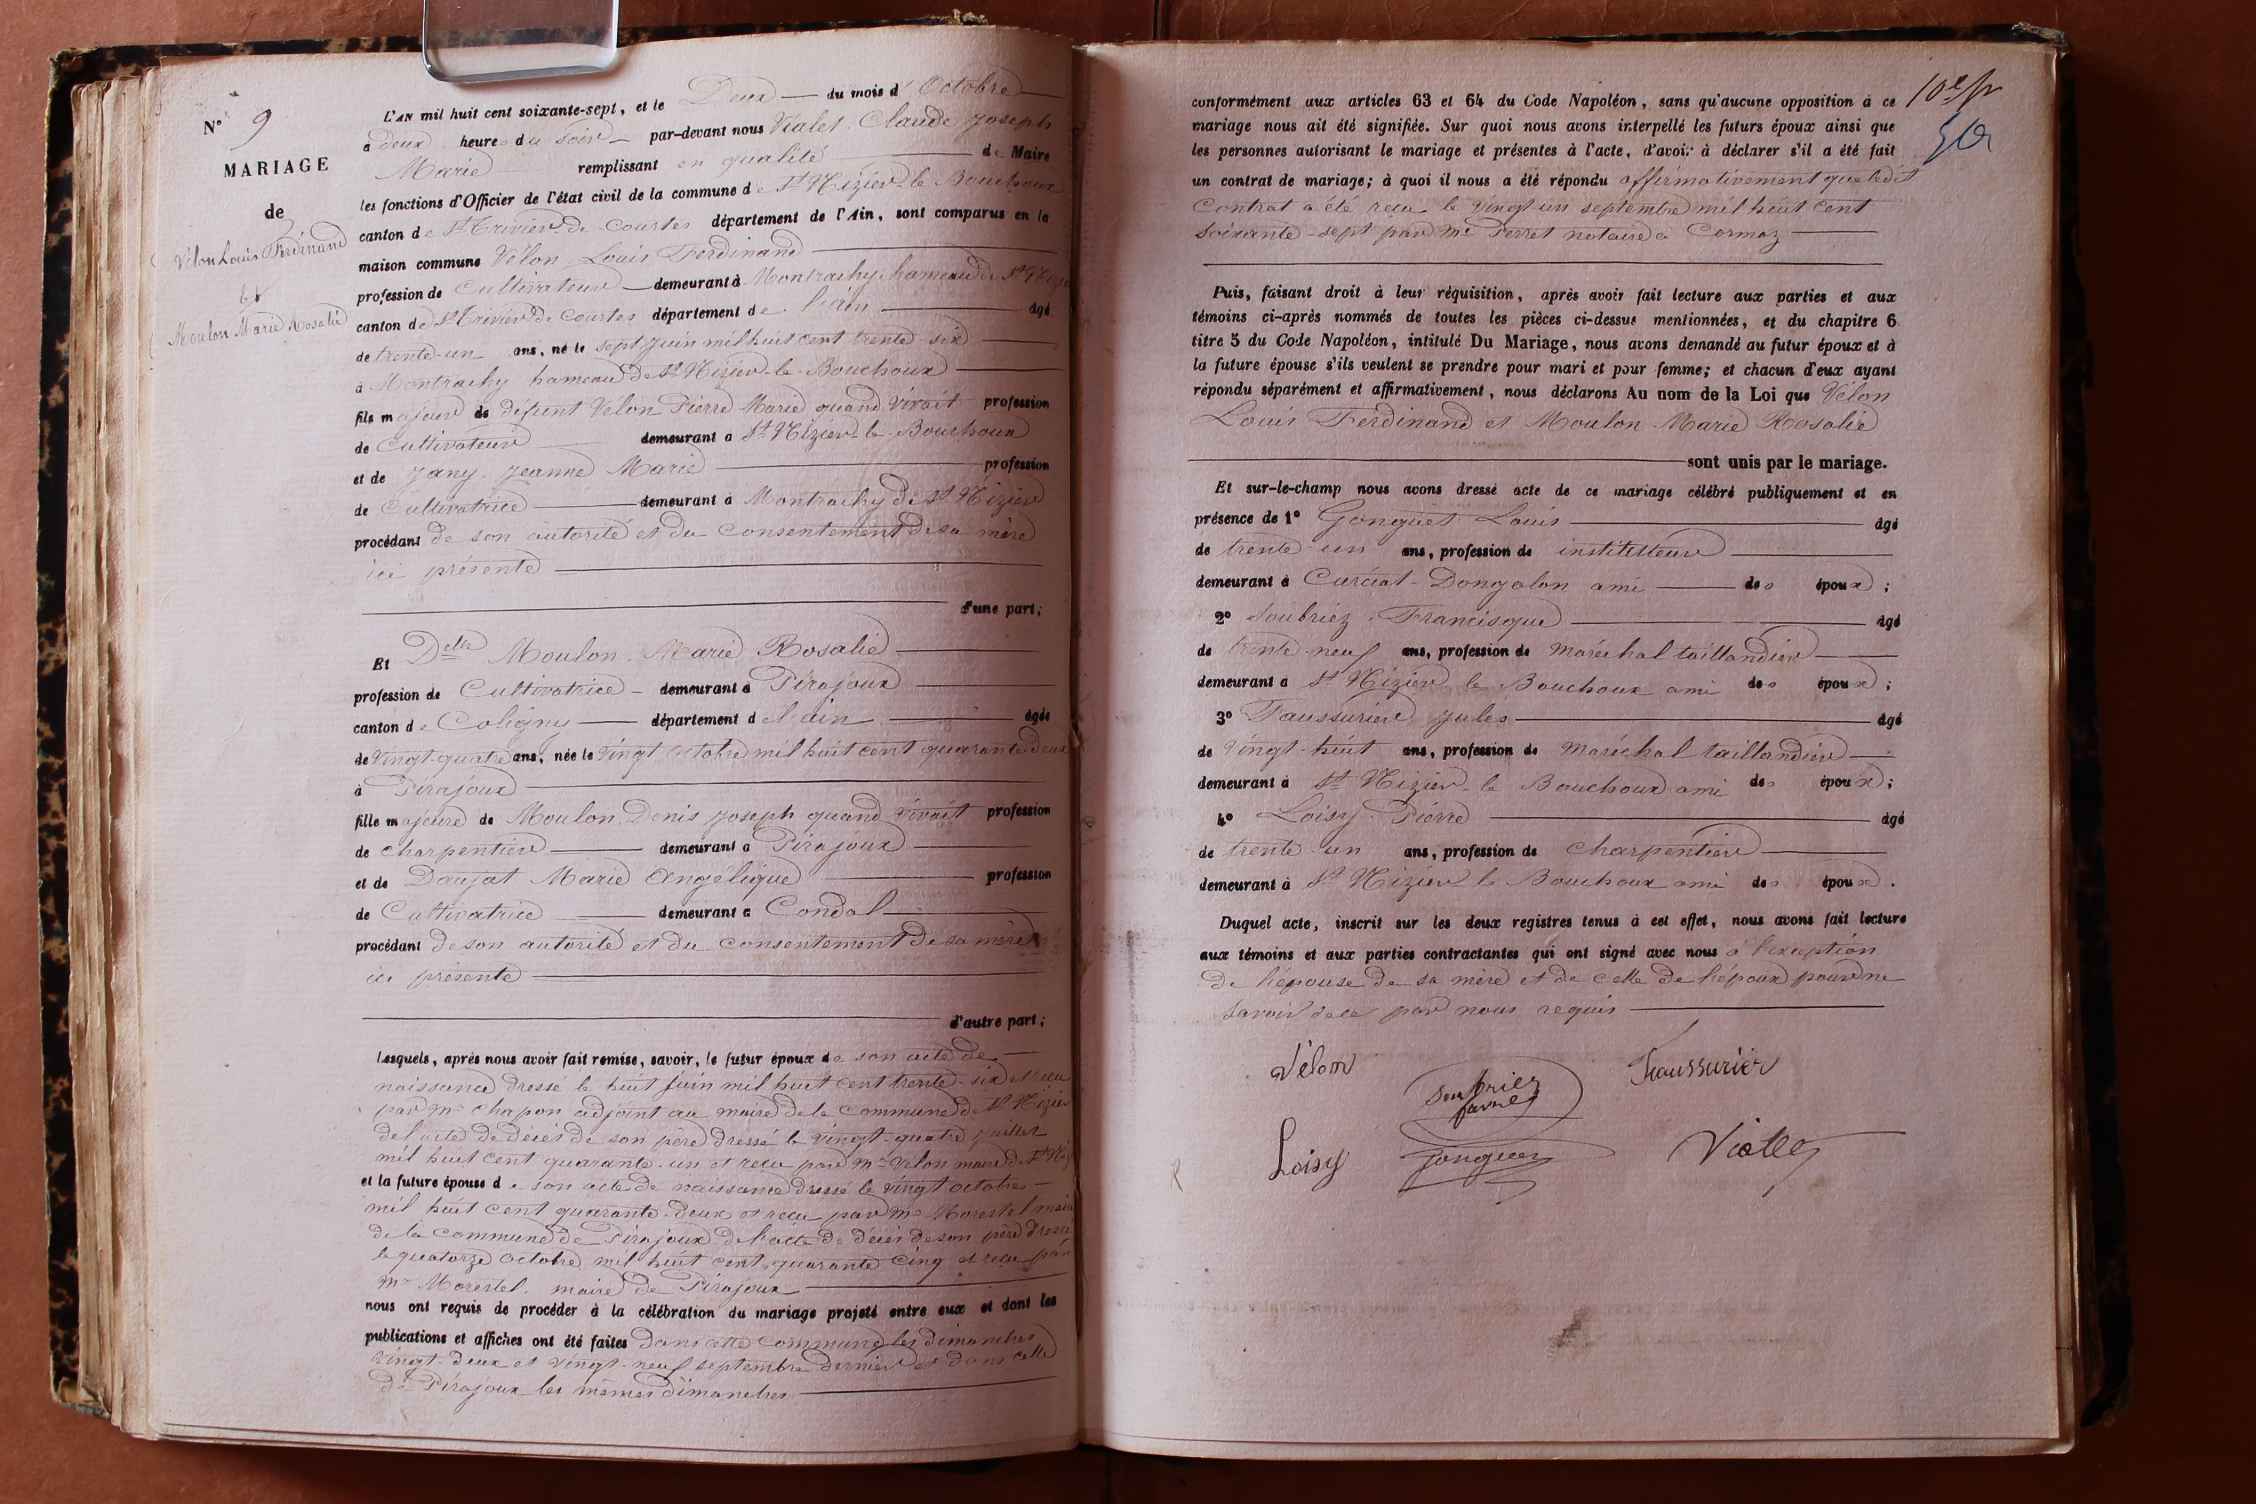 N° 9
MARIAGE
de
Vélon Louis Ferdinand
et
Moulon Marie Rosalie
L'AN mil huit cent soixante-sept, et le Deux du mois d'Octobre
à deux heures du soir par-devant nous Vialet Claude Joseph
Marie remplissant en qualité de Maire
les fonctions d'Officier de l'état civil de la commune de St Nizier-le-Bouchoux
canton de St Trivier-de-Courtes département de l'Ain, sont comparus en la
maison commune Vélon Louis Ferdinand
profession de Cultivateur demeurant à Montrachy hameau de St Nizier
canton de St Trivier de Courtes département de l'ain âgé
de trente-un ans, né le sept juin mil huit cent trente-six
à Montrachy hameau de St Nizier-le-Bouchoux
fils majeur de défunt Velon Pierre Marie quand vivait profession
de Cultivateur demeurant à St Nizier-le-Bouchoux
et de Jany Jeanne Marie profession
de Cultivatrice demeurant à Montrachy de St Nizier
procédant de son autorité et du consentement de sa mère
ici présente
d'une part;
Et Delle Moulon Marie Rosalie
profession de Cultivatrice demeurant à Pirajoux
canton de Coligny département de l'ain âgée
de vingt-quatre ans, née le vingt octobre mil huit cent quarante deux
à Pirajoux
fille majeure de Moulon Denis Joseph quand vivait profession
de charpentier demeurant à Pirajoux
et de Daujat Marie Angélique profession
de Cultivatrice demeurant à Condal
procédant de son autorité et du consentement de sa mère
ici présente
d'autre part;
Lesquels, après nous avoir fait remise, savoir, le futur époux de son acte de
naissance dressé le huit juin mil huit cent trente-six et reçu
par Mr Chapon adjoint au maire de la commune de St Nizier
de l'acte de décès de son père dressé le vingt-quatre juillet
mil huit cent quarante-un et reçu par Mr Velon maire de St Niz
et la future épouse de son acte de naissance dressé le vingt octobre
mil huit cent quarante-deux et reçu par Mr Morestel maire
de la commune de Pirajoux de l'acte de décès de son père dressé
le quatorze octobre mil huit cent quarante cinq et reçu par
Mr Morestel maire de Pirajoux
nous ont requis de procéder à la célébration du mariage projeté entre eux et dont les
publications et affiches ont été faites dans cette commune les dimanches
vingt-deux et vingt-neuf septembre dernier et dans celle
de Pirajoux les mêmes dimanches
conformément aux articles 63 et 64 du Code Napoléon, sans qu'aucune opposition à ce
mariage nous ait été signifiée. Sur quoi nous avons interpellé les futurs époux ainsi que
les personnes autorisant le mariage et présentes à l'acte, d'avoir à déclarer s'il a été fait
un contrat de mariage; à quoi il nous a été répondu affirmativement que ledit
Contrat a été reçu le vingt un septembre mil huit cent
soixante-sept par Me Perret notaire à Cormoz
Puis, faisant droit à leur réquisition, après avoir fait lecture aux parties et aux
témoins ci-après nommés de toutes les pièces ci-dessus mentionnées, et du chapitre 6
titre 5 du Code Napoléon, intitulé Du Mariage, nous avons demandé au futur époux et à
la future épouse s'ils veulent se prendre pour mari et pour femme; et chacun d'eux ayant
répondu séparément et affirmativement, nous déclarons Au nom de la Loi que Vélon
Louis Ferdinand et Moulon Marie Rosalie
sont unis par le mariage.
Et sur-le-champ nous avons dressé acte de ce mariage célébré publiquement et en
présence de 1° Gonguet Louis âgé
de trente-un ans, profession de instituteur
demeurant à Curciat-Dongalon ami des époux;
2° Soubriez Francisque âgé
de trente-neuf ans, profession de maréchal taillandier
demeurant à St Nizier le Bouchoux ami des époux;
3° Faussurier Jules âgé
de vingt-huit ans, profession de maréchal taillandier
demeurant à St Nizier-le Bouchoux ami des époux;
4° Loisy Pierre âgé
de trente-un ans, profession de charpentier
demeurant à St Nizier le Bouchoux ami des époux.
Duquel acte, inscrit sur les deux registres tenus à cet effet, nous avons fait lecture
aux témoins et aux parties contractantes qui ont signé avec nous à l'exception
de l'épouse de sa mère et de celle de l'époux pour ne
savoir de ce par nous requis
Vélon
Faussurier
Loisy